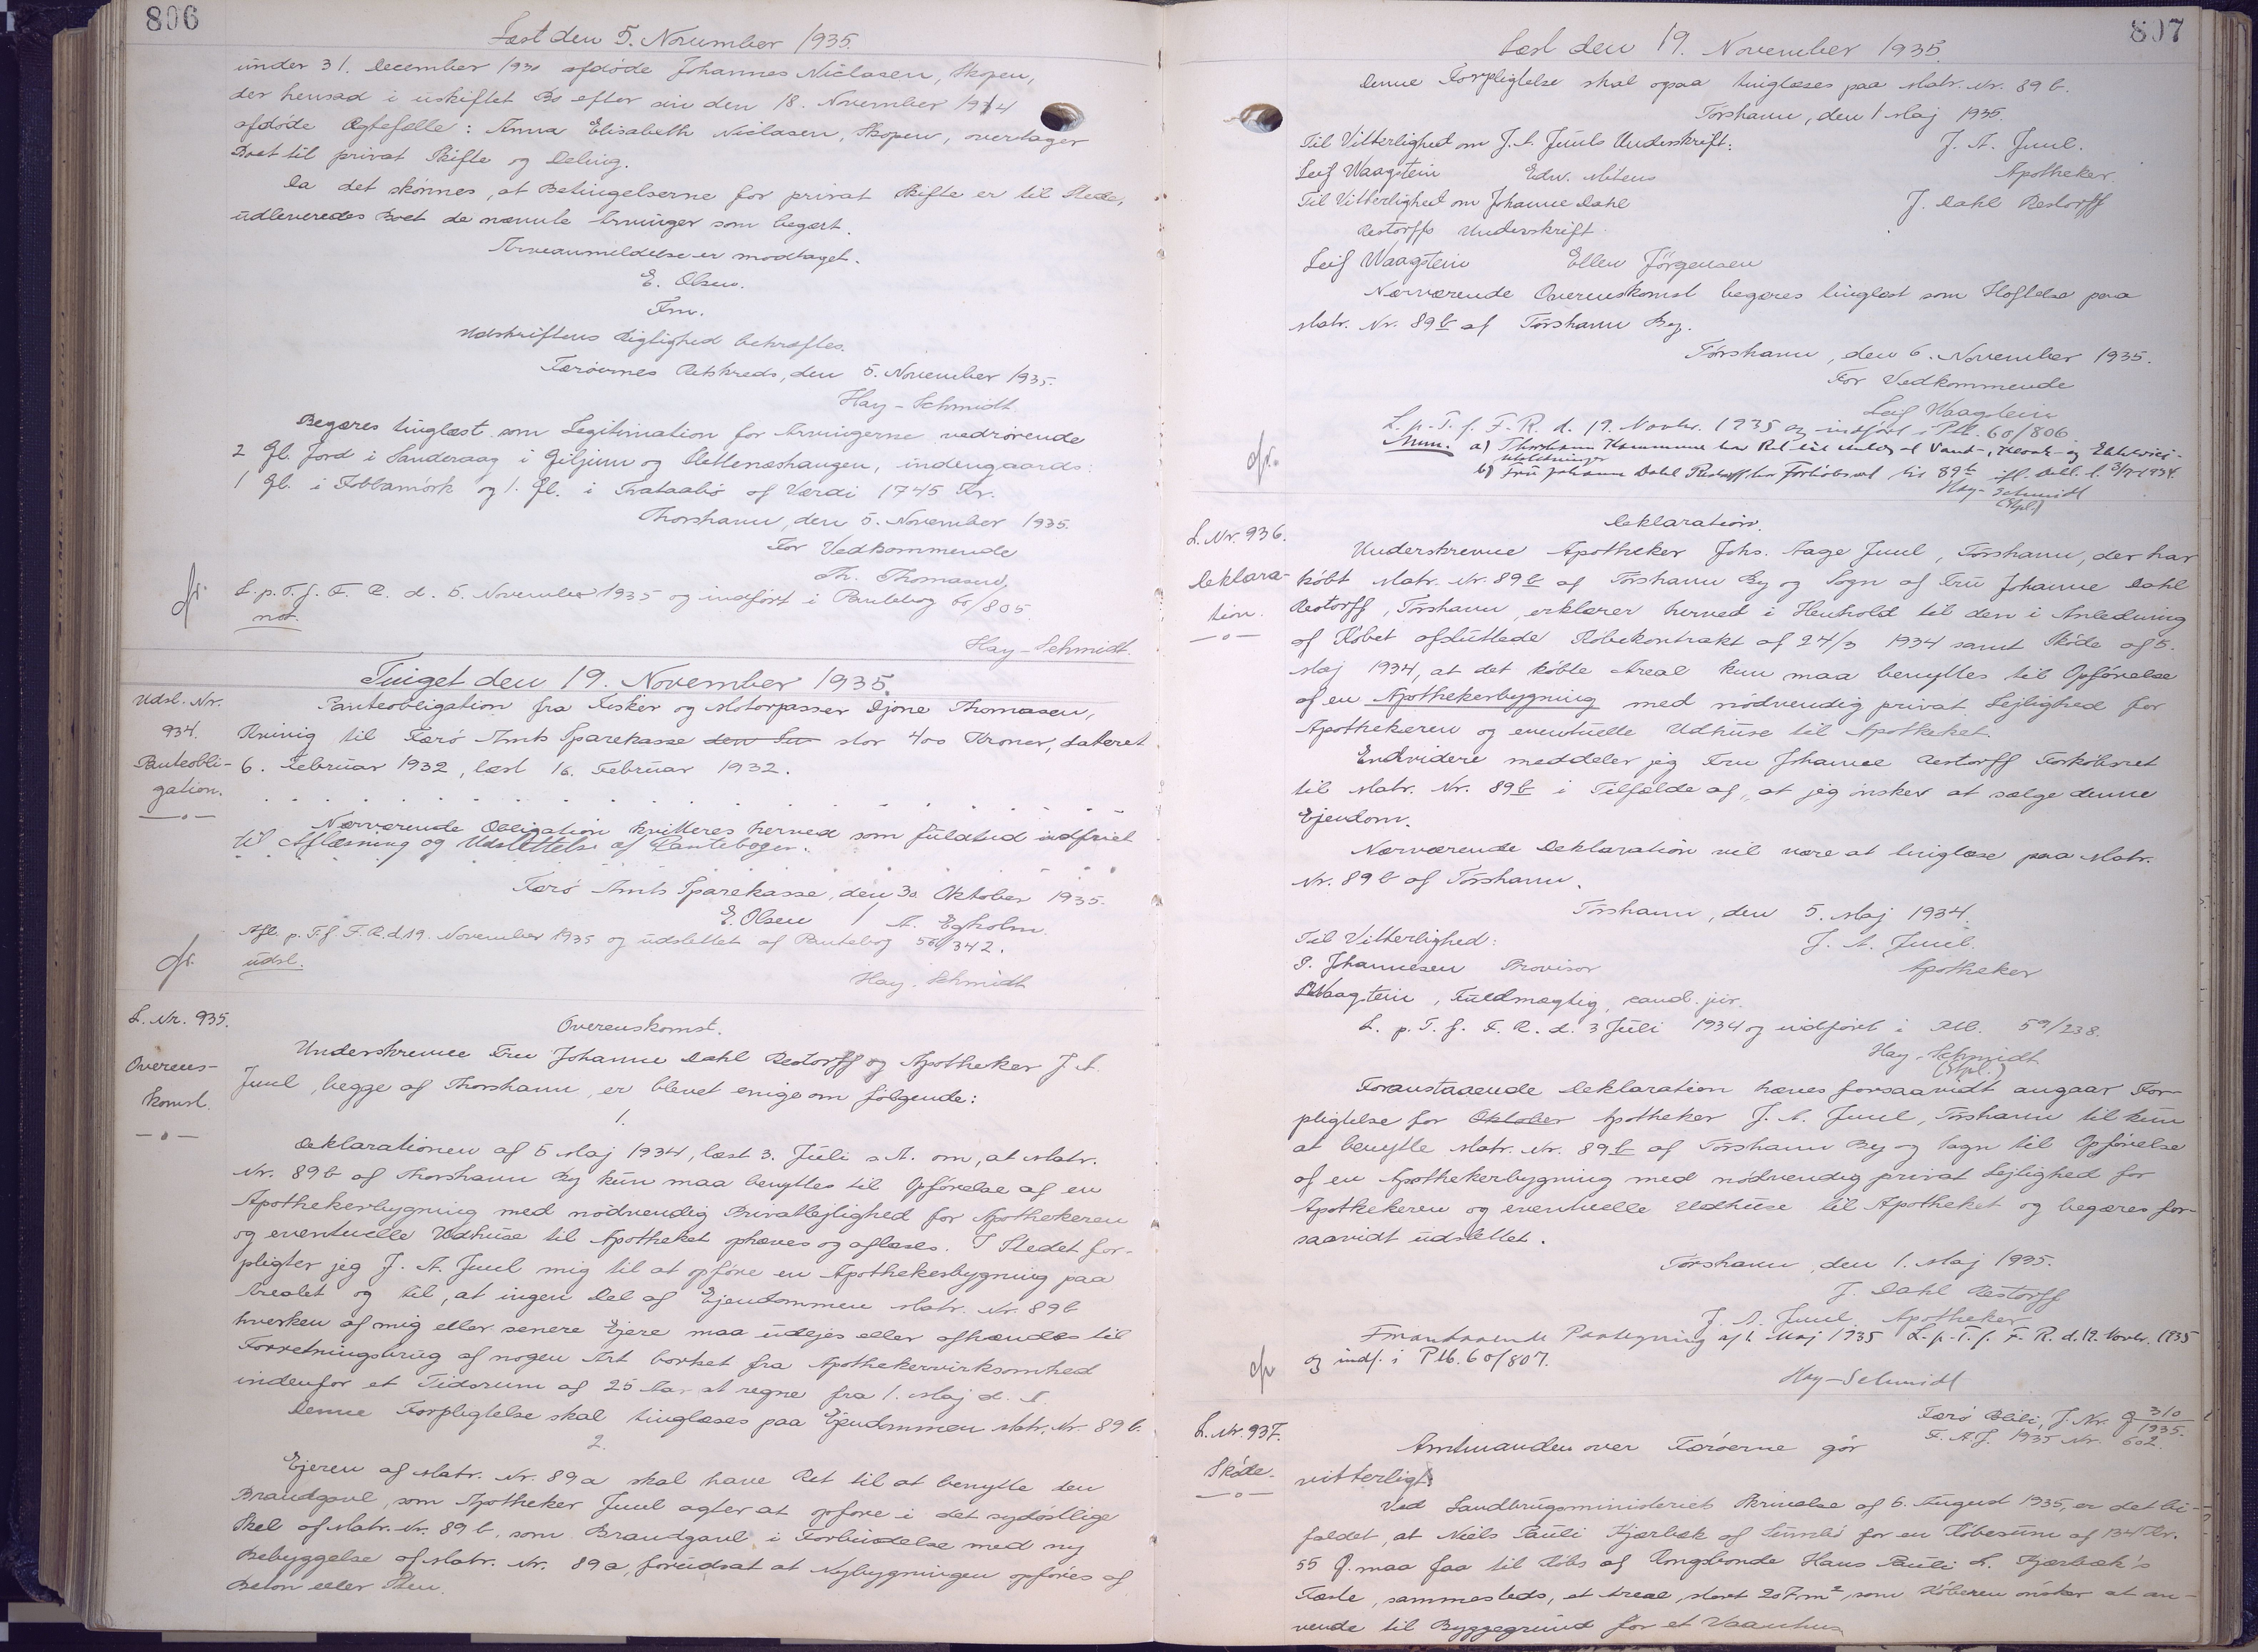 806
Læst den 5. November 1935.
under 31. December 1930 afdøde Johannes Niclasen, Skopen,
der hensad i uskiftet Bo efter sin den 18. November 1914
afdøde Ægtefælle: Anna Elisabeth Niclasen, Skopun, overtager
Boet til privat Skifte og Deling.
Da det skønnes, at Betingelserne for privat Skifte er til Stede,
udleveredes Boet de nævnte Arvinger som begært.
Arveanmeldelse er modtaget.
E. Olsen.
Fm.
Udskriftens Rigtighed bekræftes.
Færøernes Retskreds, den 5. November 1935.
Hay-Schmidt
Begæres tinglæst som Legitimation for Arvingerne vedrørende
2 Gl. Jord i Sanderaag i Giljum og Klettenæshaugen, indengaards:
1 Gl. i og 1. Gl. i af Værdi 1745 Kr.
Thorshavn, den 5. November 1935.
For Vedkommende
Th. Thomasen,
L. p. T. f. F. R. d. 5. November 1935 og indført i Pantebog 60/805
not.
Hay-Schmidt.
Tinget den 19. November 1935.
Udsl. Nr.
934.
Panteobli-
gation.
Panteobligation fra Fisker og Motorpasser Djone Thomasen,
Kvivig til Færø Amts Sparekasse den stor 400 Kroner, dateret
6. Februar 1932, læst 16. Februar 1932.
Nærværende Obligation kvitteres herved som fuldtud indfriet
til Aflæsning og Udslettelse af Pantebogen.
Færø Amts Sparekasse, den 30 Oktober 1935.
E. Olsen / A. Egholm.
Afl. p. T. f. F. R. d. 19. November 1935 og udslettet af Pantebog 56/342.
udsl.
Hay-Schmidt
L. Nr. 935.
Overens-
komst.
Overenskomst.
Underskrevne Fru Johanne Dahl Restorff og Apotheker J. A.
Juul, begge af Thorshavn, er blevet enige om følgende:
1.
Deklarationen af 5 Maj 1934, læst 3. Juli s. A. om, at Matr.
Nr. 89b af Thorshavn By kun maa benyttes til Opførelse af en
Apothekerbygning med nødvendig Privatlejlighed for Apothekeren
og eventuelle Udhuse til Apotheket ophæves og aflæses. I Stedet for-
pligter jeg J. A. Juul mig til at opføre en Apothekerbygning paa
Arealet og til, at ingen Del af Ejendommen Matr. Nr. 89b
hverken af mig eller senere Ejere maa udlejes eller afhændes til
Forretningsbrug af nogen Art bortset fra Apothekervirksomhed
indenfor et Tidsrum af 25 Aar at regne fra 1. Maj d. A.
Denne Forpligtelse skal tinglæses paa Ejendommen Matr. Nr. 89b.
2.
Ejeren af Matr. Nr. 89a skal have Ret til at benytte den
Brandgavl, som Apotheker Juul agter at opføre i det sydøstlige
Skel af Matr. Nr. 89b, som Brandgavl i Forbindelse med ny
Bebyggelse af Matr. Nr. 89a, forudsat at Nybygningen opføres af
Beton eller Sten.
807
Læst den 19. November 1935.
Denne Forpligtelse skal ogsaa tinglæses paa Matr. Nr. 89b.
Tórshavn, den 1 Maj 1935.
Til Vitterlighed om J. A. Juuls Underskrift: J. A. Juul.
Leif Waagstein Edw. Mitens Apotheker.
Til Vitterlighed om Johanne Dahl J. Dahl Restorff
Restorffs Underskrift
Leif Waagstein Ellen Jörgensen
Nærværende Overenskomst begæres tinglæst som Hæftelse paa
Matr. Nr. 89b af Tórshavn By.
Tórshavn, den 6. November 1935.
For Vedkommende
Leif Waagstein
L. p. T. f. F. R. d. 19. Novbr. 1935 og indført i Ptb. 60/806.
Anm. a) Thorshavn Kommune har Ret til Anlæg af Vand-, Kloak- og Elektrici-
b) Fru Johanne Dahl Restorff har Forkøbsret til 89b ifl. Dekl. l. 3/7 1934.
Hay-Schmidt
(Spl.)
L. Nr. 936.
Deklara-
tion.
Deklaration.
Underskrevne Apotheker Johs. Aage Juul, Tórshavn, der har
købt Matr. Nr. 89b af Tórshavn By og Sogn af Fru Johanne Dahl
Restorff, Tórshavn, erklærer herved i Henhold til den i Anledning
af Købet afsluttede Købekontrakt af 24/3 1934 samt Skøde af 5.
Maj 1934, at det købte Areal kun maa benyttes til Opførelse
af en Apothekerbygning med nødvendig privat Lejlighed for
Apothekeren og eventuelle Udhuse til Apotheket.
Endvidere meddeler jeg Fru Johanne Restorff Forkøbsret
til Matr. Nr. 89b i Tilfælde af, at jeg ønsker at sælge denne
Ejendom.
Nærværende Deklaration vil være at tinglæse paa Matr.
Nr. 89b af Tórshavn.
Tórshavn, den 5. Maj 1934.
Til Vitterlighed: J. A. Juul.
P. Johannesen Provisor Apotheker
Waagstein, Fuldmægtig, cand. jur.
L. p. T. f. F. R. d. 3 Juli 1934 og indført i Ptb. 59/238.
Hay-Schmidt
(Spl.)
Foranstaaende Deklaration hæves forsaavidt angaar For-
pligtelse for Oktober Apotheker J. A. Juul, Tórshavn til kun
at benytte Matr. Nr. 89b af Tórshavn By og Sogn til Opførelse
af en Apothekerbygning med nødvendig privat Lejlighed for
Apothekeren og eventuelle Udhuse til Apotheket og begæres for-
saavidt udslettet.
Tórshavn, den 1. Maj 1935.
J. Dahl Restorff
J. A. Juul Apotheker
Foranstaaende Paategning af 1. Maj 1935 L. p. T. f. F. R. d. 19. Novbr. 1935
og indf. i Ptb. 60/807.
Hay-Schmidt
L. Nr. 937.
Skøde.
Færø Politi, J. Nr. 310/1935.
F. A. J. 1935 Nr. 602.
Amtmanden over Færøerne gør
vitterligt
Ved Landbrugsministeriets Skrivelse af 6. August 1935, er det bi-
faldet, at Niels Pauli Kjærbæk af Sumbø for en Købesum af 134 Kr.
55 Ø. maa faa til Købs af Kongsbonde Hans Pauli L. Kjærbæk's
Fæste, sammesteds, et Areal, stort 207 m², som Køberen ønsker at an-
vende til Byggegrund for et Vaanhus